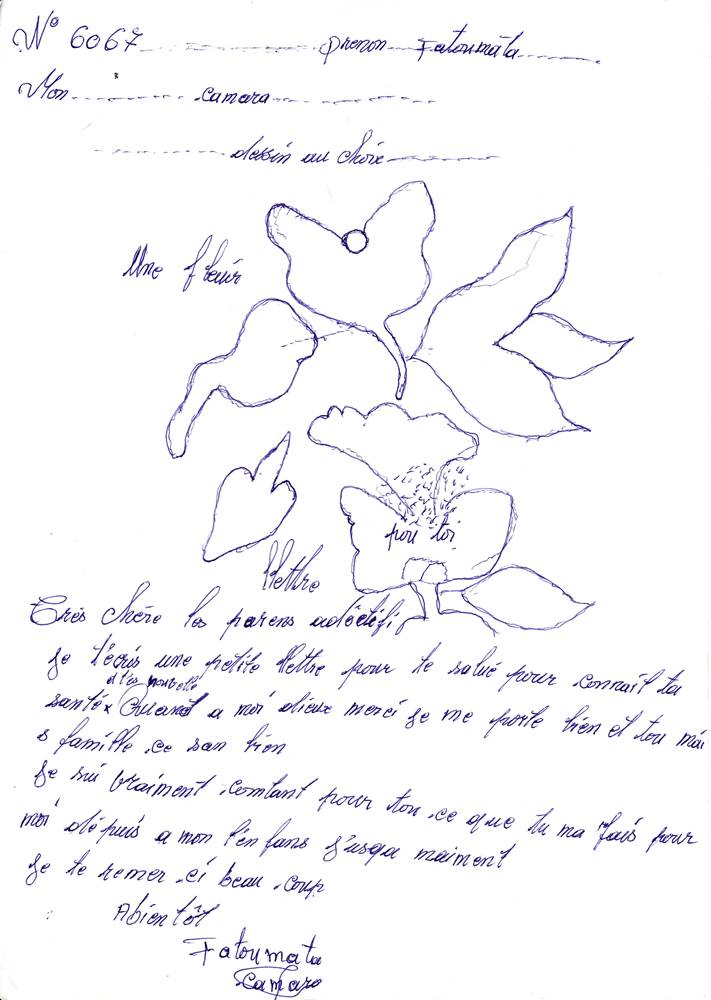 N° 6067 prenon Fatoumata
Non camara
dessin au choix
Une fleuir
pou toi
llettre
Très chère les parens adéctifi
je t'écris une petite llettre pour te salué pour connaît ta
santé x Quant a moi dieux merci je me porte bien et tou ma
et tes nouvelle
s famille ce san bien
je sui vraiment comtant pour tou ce que tu ma fais pour
moi dépuis a mon l'enfans j'usqa maiment
je te remer ci beau coup
Abientôt
Fatoumata
Camara